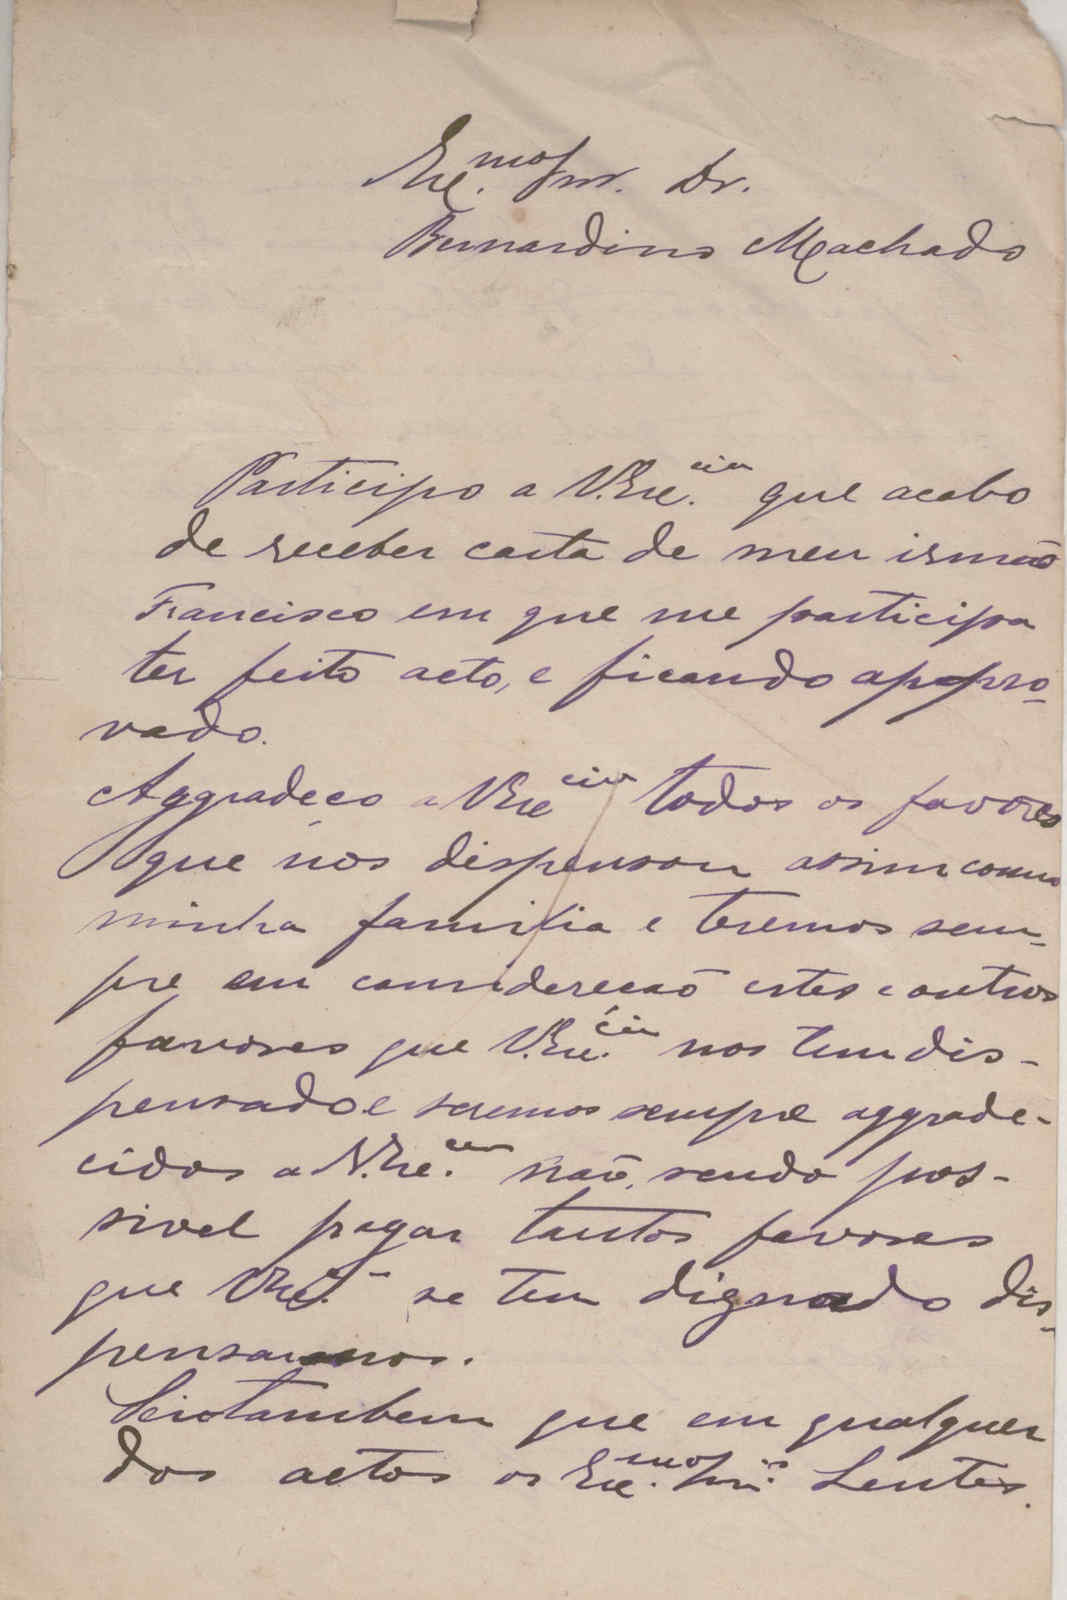 Exc.mo Snr. Dr.
Bernardino Machado
Participo a V.Exc.cia que acabo
de receber carta de meu irmão
Francisco em que me participa
ter feito acto, e ficando appro-
vado.
Aggradeço a VExccia todos os favores
que nos dispensou assim como
minha familia e teremos sem-
pre em considereção estes e outros
favores que V.Exc.cia nos tem dis-
pensado e seremos sempre aggrade-
cidos a V.Exc.cia não, sendo pos-
sivel pagar tantos favores
que VExc.ia se tem dignado dis-
pensar-nos.
Sei tambem que em qualquer
dos actos os Exc.mos Snrs. Lentes.